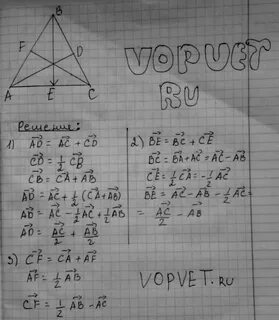 B
F
D
A
E
C
VOPVET
RU
Решение:
1) AD = AC + CD
CD = 1/2 CB
CB = CA + AB
AD = AC + 1/2 (CA + AB)
AD = AC - 1/2 AC + 1/2 AB
AD = AC/2 + AB/2
2) BE = BC + CE
BC = BA + AC = AC - AB
CE = 1/2 CA = -1/2 AC
BE = AC - AB - 1/2 AC =
= AC/2 - AB
3) CF = CA + AF
AF = 1/2 AB
CF = 1/2 AB - AC
VOPVET.RU